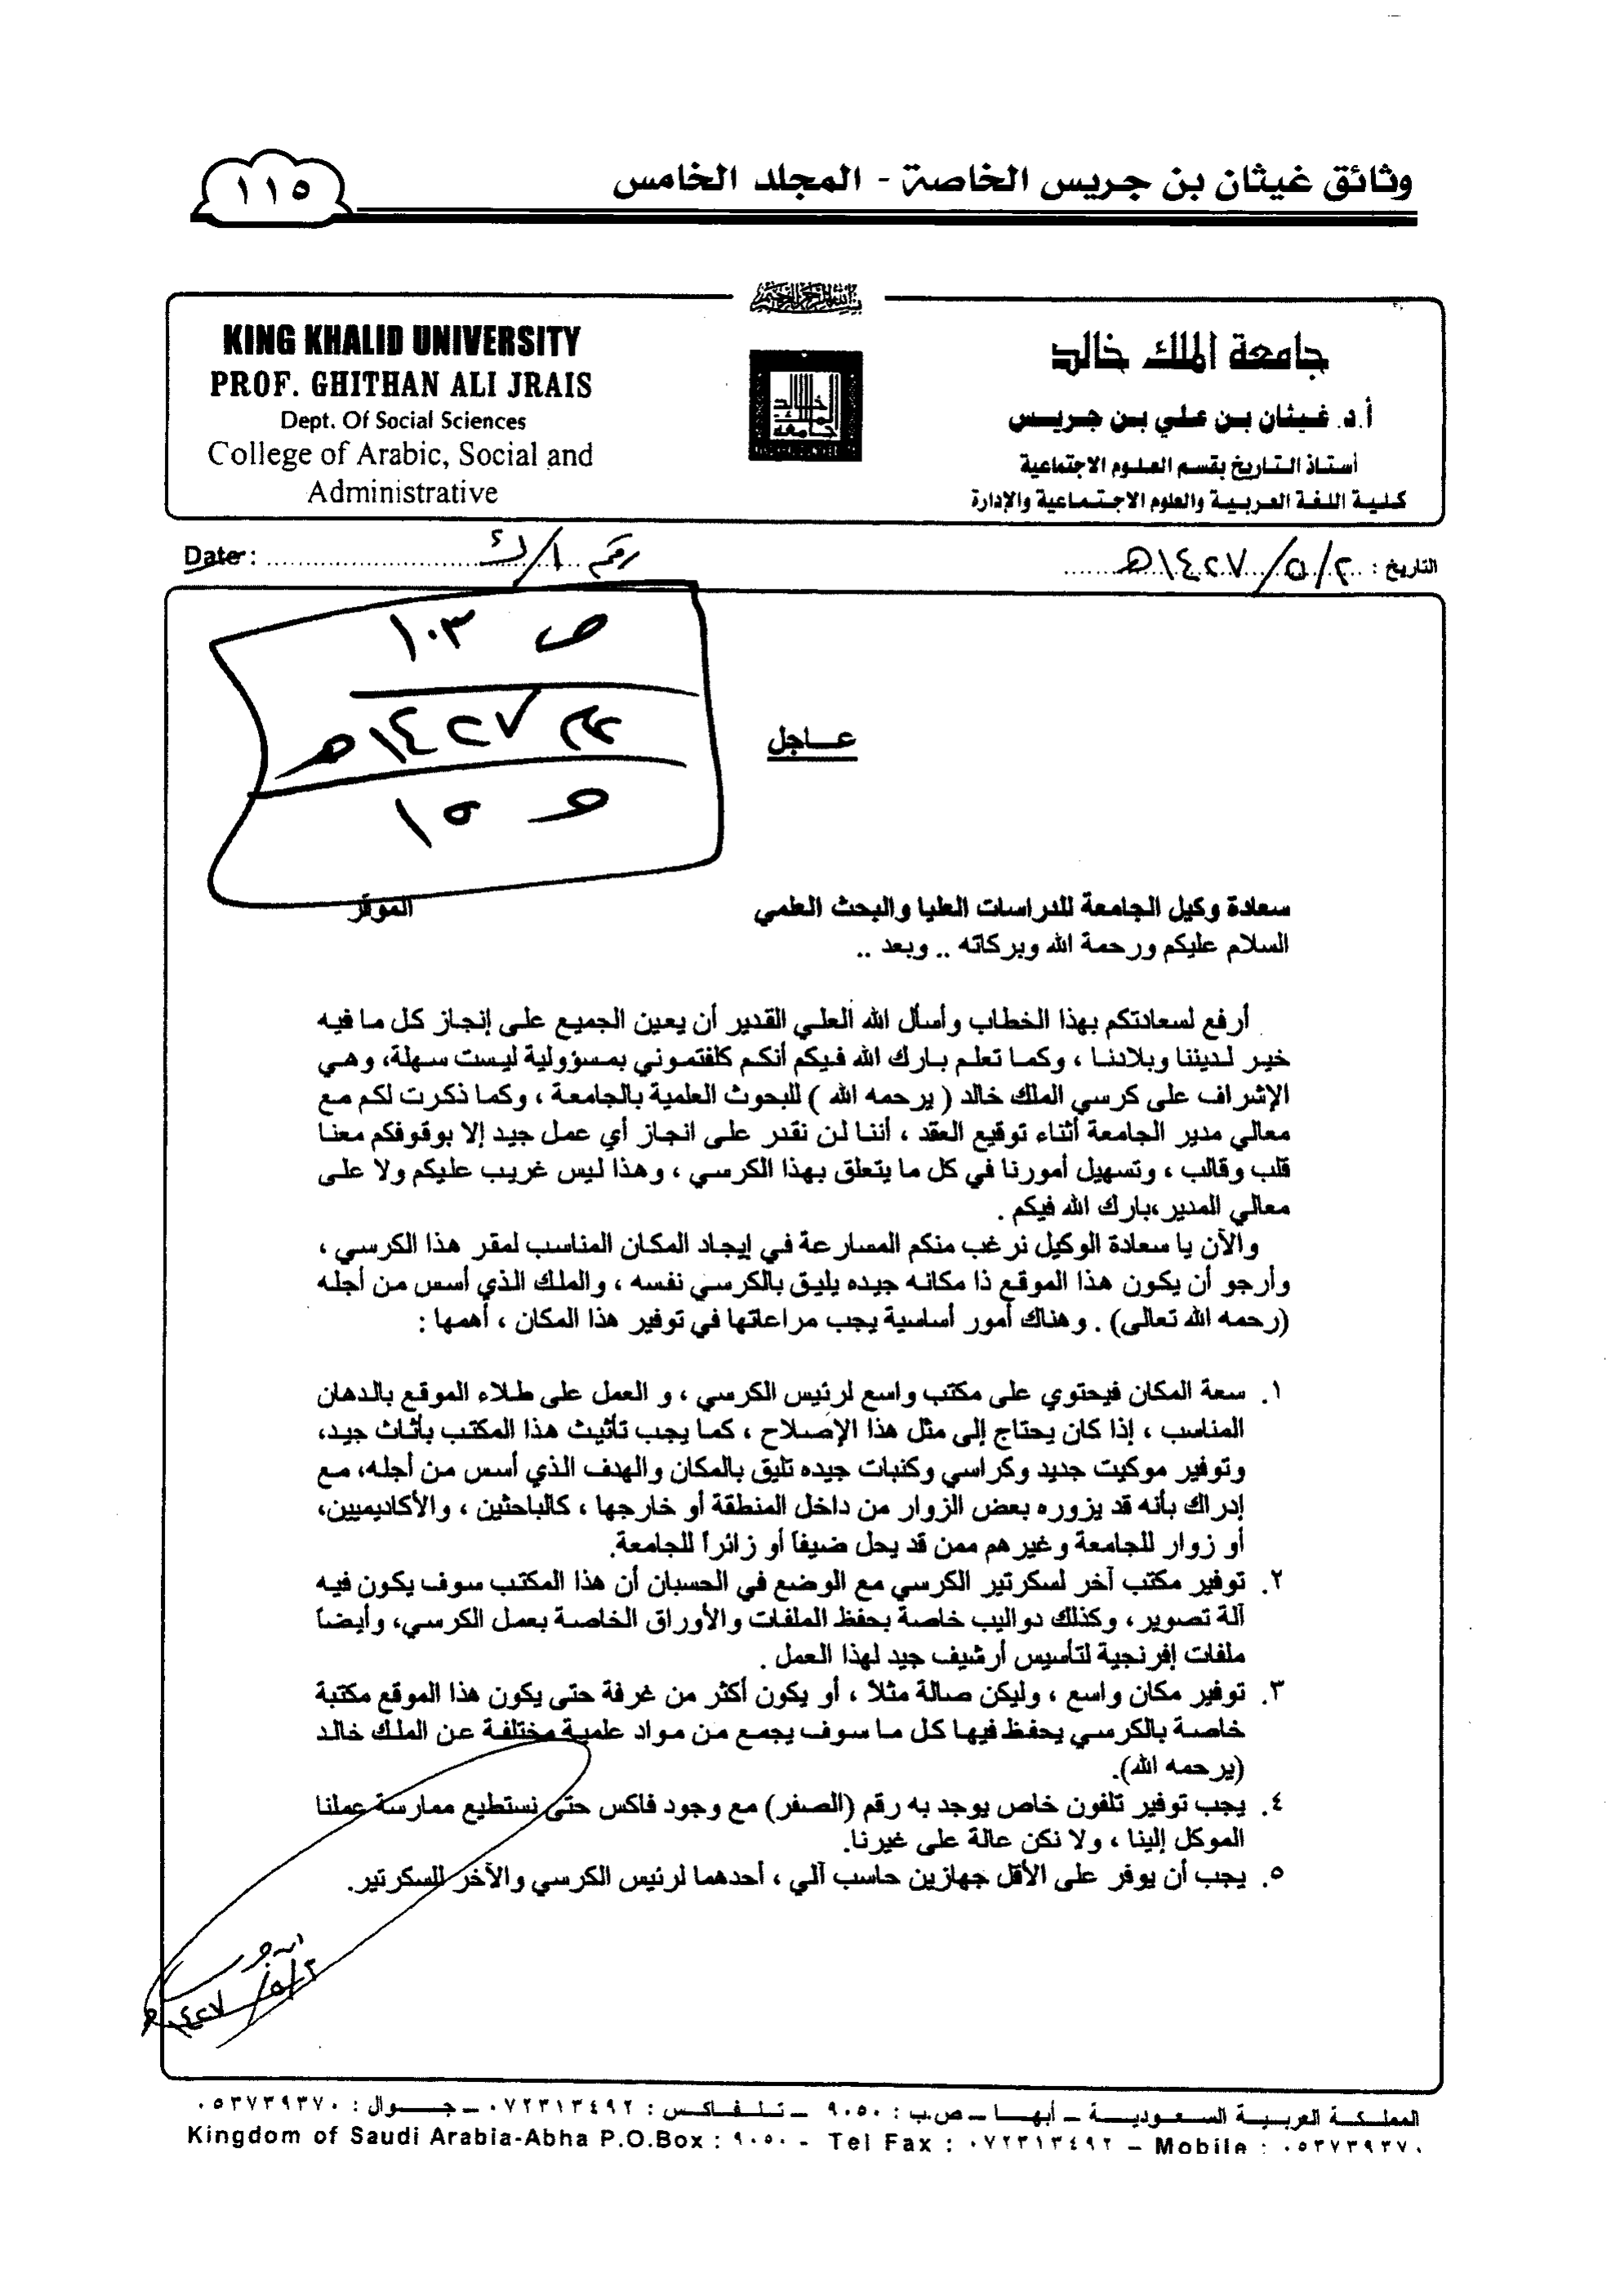 وثائق غيثان بن جريس الخاصة - المجلد الخامس
١١٥
بسم الله الرحمن الرحيم
جامعة الملك خالد
أ.د. غيثان بن علي بن جريس
أستاذ التاريخ بقسم العلوم الاجتماعية
كلية اللغة العربية والعلوم الاجتماعية والإدارة
KING KHALID UNIVERSITY
PROF. GHITHAN ALI JRAIS
Dept. Of Social Sciences
College of Arabic, Social and
Administrative
التاريخ : ٢/٥/١٤٢٧هـ
Date : رقم ١/ك
ص ١٠٣
١٤٢٧هـ
١٥
عاجل
سعادة وكيل الجامعة للدراسات العليا والبحث العلمي الموقر
السلام عليكم ورحمة الله وبركاته .. وبعد ..
أرفع لسعادتكم بهذا الخطاب وأسأل الله العلي القدير أن يعين الجميع على إنجاز كل ما فيه
خير لديننا وبلادننا ، وكما تعلم بارك الله فيكم أنكم كلفتموني بمسؤولية ليست سهلة، وهي
الإشراف على كرسي الملك خالد ( يرحمه الله ) للبحوث العلمية بالجامعة ، وكما ذكرت لكم مع
معالي مدير الجامعة أثناء توقيع العقد ، أننا لن نقدر على انجاز أي عمل جيد إلا بوقوفكم معنا
قلب وقالب ، وتسهيل أمورنا في كل ما يتعلق بهذا الكرسي ، وهذا ليس غريب عليكم ولا على
معالي المدير،بارك الله فيكم .
والآن يا سعادة الوكيل نرغب منكم المسارعة في إيجاد المكان المناسب لمقر هذا الكرسي ،
وأرجو أن يكون هذا الموقع ذا مكانه جيده يليق بالكرسي نفسه ، والملك الذي أسس من أجله
(رحمه الله تعالى) . وهناك أمور أساسية يجب مراعاتها في توفير هذا المكان ، أهمها :
١. سعة المكان فيحتوي على مكتب واسع لرئيس الكرسي ، و العمل على طلاء الموقع بالدهان
المناسب ، إذا كان يحتاج إلى مثل هذا الإصلاح ، كما يجب تأثيث هذا المكتب بأثاث جيد،
وتوفير موكيت جديد وكراسي وكنبات جيده تليق بالمكان والهدف الذي أسس من أجله، مع
إدراك بأنه قد يزوره بعض الزوار من داخل المنطقة أو خارجها ، كالباحثين ، والأكاديميين،
أو زوار للجامعة وغيرهم ممن قد يحل ضيفاً أو زائراً للجامعة.
٢. توفير مكتب آخر لسكرتير الكرسي مع الوضع في الحسبان أن هذا المكتب سوف يكون فيه
آلة تصوير، وكذلك دواليب خاصة بحفظ الملفات والأوراق الخاصة بعمل الكرسي، وأيضاً
ملفات إفرنجية لتأسيس أرشيف جيد لهذا العمل .
٣. توفير مكان واسع ، وليكن صالة مثلاً ، أو يكون أكثر من غرفة حتى يكون هذا الموقع مكتبة
خاصة بالكرسي يحفظ فيها كل ما سوف يجمع من مواد علمية مختلفة عن الملك خالد
(يرحمه الله).
٤. يجب توفير تلفون خاص يوجد به رقم (الصفر) مع وجود فاكس حتى نستطيع ممارسة عملنا
الموكل إلينا ، ولا نكن عالة على غيرنا.
٥. يجب أن يوفر على الأقل جهازين حاسب آلي ، أحدهما لرئيس الكرسي والآخر للسكرتير.
٢/٥/١٤٢٧هـ
المملكة العربية السعودية – أبها – ص.ب : ٩٠٥٠ – تلفاكس : ٠٧٢٣١٣٤٩٢ – جوال : ٠٥٣٧٣٩٣٧٠
Kingdom of Saudi Arabia-Abha P.O.Box : ٩٠٥٠ - Tel Fax : ٠٧٢٣١٣٤٩٢ – Mobile : ٠٥٣٧٣٩٣٧٠